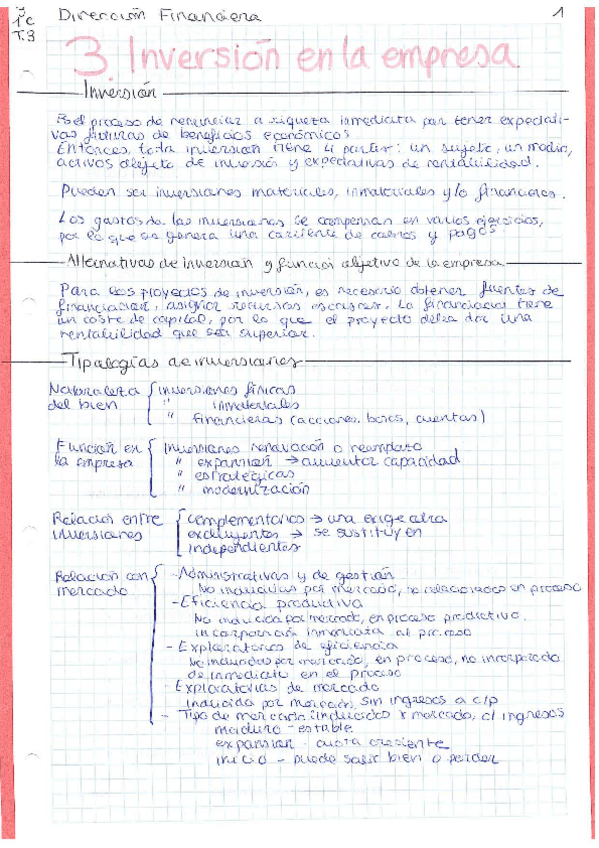 3
1ºC
T.3
Dirección Financiera
1
3. Inversión en la empresa.
Inversión
Es el proceso de renunciar a riqueza inmediata por tener expectati-
vas futuras de beneficios económicos
Entonces, toda inversión tiene 4 partes: un sujeto, un medio,
activos objeto de inversión y expectativas de rentabilidad.
Pueden ser inversiones materiales, inmateriales y/o financieras.
Los gastos de las inversiones se compensan en varios ejercicios,
por lo que se genera una corriente de cobros y pagos
Alternativas de inversión y función objetivo de la empresa
Para los proyectos de inversión, es necesario obtener fuentes de
financiación, asignar recursos escasos. La financiación tiene
un coste de capital, por lo que el proyecto debe dar una
rentabilidad que sea superior.
Tipologías de inversiones
Naturaleza del bien
inversiones físicas
" inmateriales
" financieras (acciones, bonos, cuentas)
Función en la empresa
inversiones renovación o reemplazo
" expansión → aumentar capacidad
" estratégicas
" modernización
Relación entre inversiones
complementarias → una exige otra
excluyentes → se sustituyen
independientes
Relación con mercado
- Administrativas y de gestión
No inducidas por mercado, no relacionadas en proceso
- Eficiencia productiva
No inducida por mercado, en proceso productivo.
incorporación inmediata al proceso
- Exploratorias de eficiencia
No inducidas por mercado, en proceso, no incorporada
de inmediato en el proceso
- Exploratorias de mercado
Inducida por mercado, sin ingresos a c/p
- Tipo de mercado: inducidas x mercado, c/ ingresos
maduro - estable
expansión - cuota creciente
inicio - puede salir bien o perder